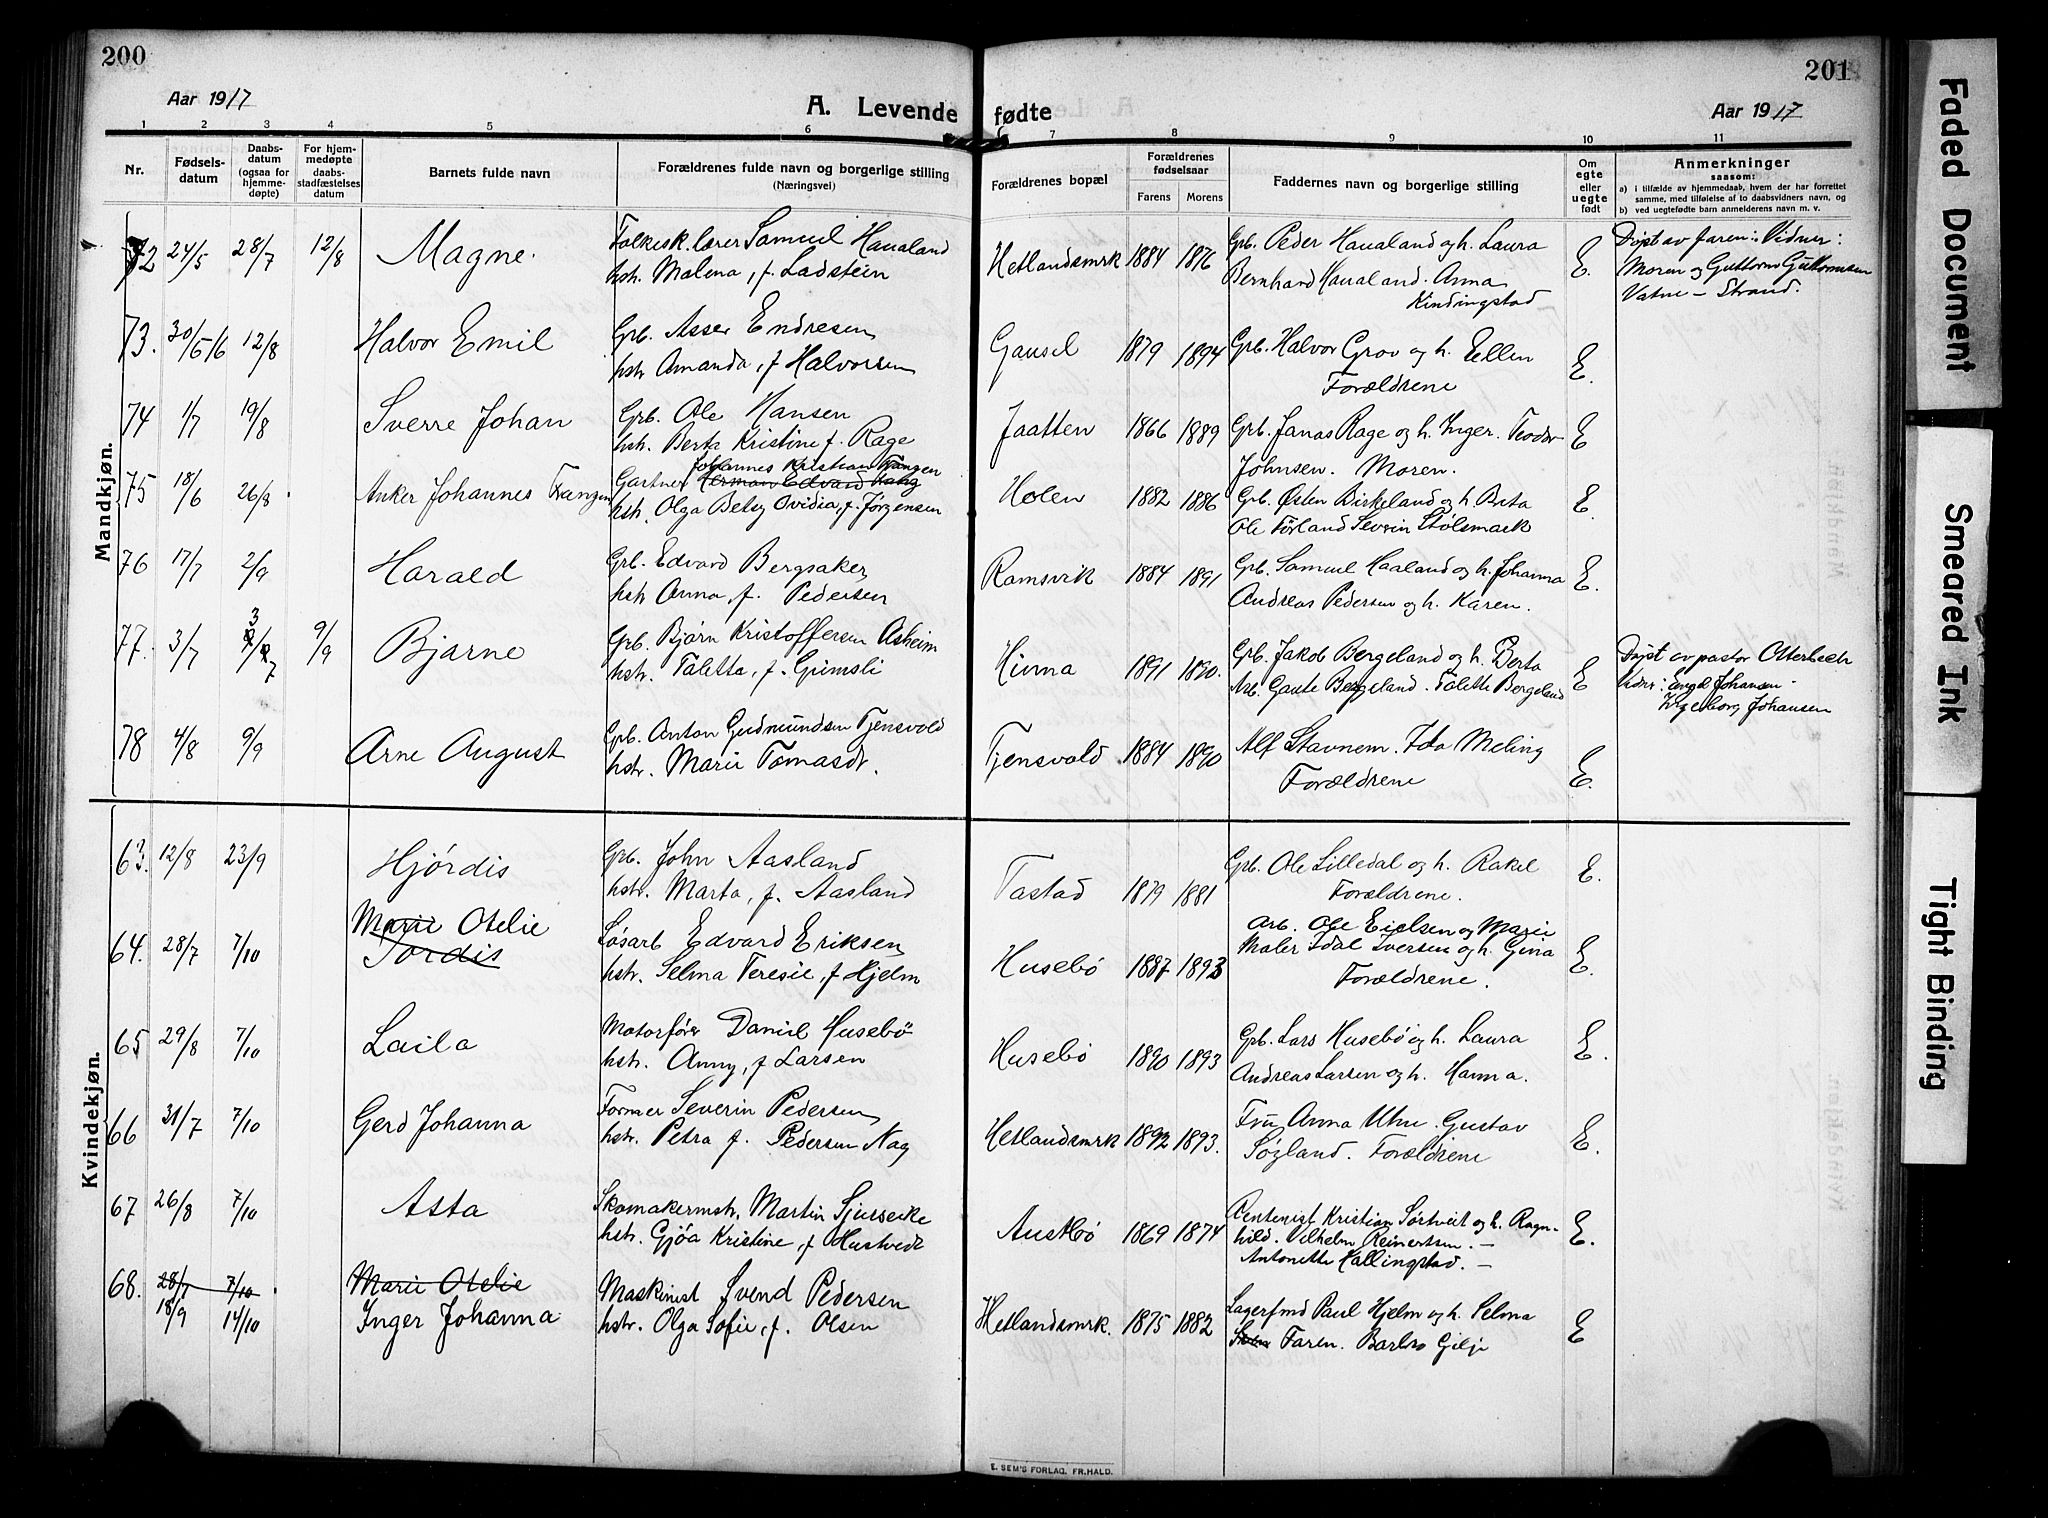 200
201
Aar 1917
A. Levende fødte
Aar 1917
1 2 3 4 5 6 7 8 9 10 11
Nr.
Fødsels-
datum
Daabs-
datum
(ogsaa for
hjemme-
døpte)
For hjem-
medøpte
daabs-
stadfæstelses
datum
Barnets fulde navn
Forældrenes fulde navn og borgerlige stilling
(Næringsvei)
Forældrenes bopæl
Forældrenes
fødselsaar
Farens Morens
Faddernes navn og borgerlige stilling
Om
egte
eller
uegte
født
Anmerkninger
saasom:
a) i tilfælde av hjemmedaab, hvem der har forrettet
samme, med tilføielse af to daabsvidners navn, og
b) ved uegtefødte barn anmelderens navn m. v.
Mandkjøn.
72 24/5 28/7 12/8 Magne. Folkesk. lærer Samuel Haualand
hstr. Malena, f. Ladstein
Hetlandsmrk 1884 1876 Grb. Peder Haualand og h. Laura
Bernhard Haualand. Anna
Kindingstad
E. Døpt av faren: Vidner:
Moren og Guttorm Guttormsen
Vatne - Strand.
73. 30/5 16 12/8 Halvor Emil Grb. Asser Endresen
hstr Amanda, f Halvorsen
Gausel 1879 1894 Grb. Halvor Grov og h. Ellen
Forældrene
E.
74 1/7 19/8 Sverre Johan Grb. Ole Hansen
hstr. Berta Kristine f. Rage
Jaatten 1866 1889 Grb. Jonas Rage og h. Inger. Teodor
Johnsen. Moren.
E
75 18/6 26/8 Anker Johannes Trangen Johannes Kristian Trangen
Gartner Herman Edvard
hstr. Olga Betsy Ovidia, f. Jørgensen
Holen 1882 1886 Grb. Østen Birkeland og h Berta
Ole Førland Severin Stølsmark
E.
76 17/7 2/9 Harald Grb. Edvard Bergsaker
hstr Anna, f. Pedersen
Ramsvik 1884 1891 Grb. Samuel Haaland og h. Johanna
Andreas Pedersen og h. Karen.
E.
77. 3/7 3/7 9/9 Bjarne Grb. Bjørn Kristoffersen Asheim
hstr. Taletta, f. Grimsli
Hinna 1891 1890. Grb. Jakob Bergeland og h. Berta
Arb. Gaute Bergeland. Talette Bergeland
E Døpt av pastor Otterbech
Vidner: Engel Johansen
Ingeborg Johansen
78 4/8 9/9 Arne August Grb. Anton Gudmundsen Tjensvold
hstr. Marie Tomasdr.
Tjensvold 1884 1890 Alf Stavnem. Ida Meling
Forældrene
E.
Kvindekjøn.
63. 12/8 23/9 Hjørdis Grb. John Aasland
hstr. Marta, f. Aasland
Tastad 1879 1881 Grb. Ole Lilledal og h. Rakel
Forældrene.
E.
64. 28/7 7/10 Marie Otelie
Tordis
Løsarb Edvard Eriksen
hstr. Selma Teresie, f Hjelm
Husebø 1887 1893 Arb. Ole Eielsen og Marie
Maler Idal Iversen og h. Gina
Forældrene.
E.
65 29/8 7/10 Laila Motorfører Daniel Husebø
hstr. Anny, f Larsen
Husebø 1890 1893 Grb. Lars Husebø og h. Laura
Andreas Larsen og h. Hanna.
E.
66 31/7 7/10 Gerd Johanna Former Severin Pedersen
hstr. Petra f. Pedersen Nag
Hetlandsmrk 1892 1893. Fru Anna Uhn. Gustav
Søyland. Forældrene
E.
67 26/8 7/10 Asta Skomakermstr. Martin Sjurseike
hstr. Gjøa Kristine, f Hustvedt
Austbø 1869 1874 Rentenist Kristian Sørtveit og h. Ragn-
hild. Vilhelm Reinertsen. -
Antonette Hallingstad. -
E.
68. 28/7 7/10 Marie Otelie
18/9 14/10 Inger Johanna
Maskinist Svend Pedersen
hstr. Olga Sofie, f. Olsen
Hetlandsmrk. 1875 1882 Lagerfmd Paul Hjelm og h. Selma
Faren. Barbro Gilje
E
E. SEM'S FORLAG, FR.HALD.
Faded Document
Smeared Ink
Tight Binding